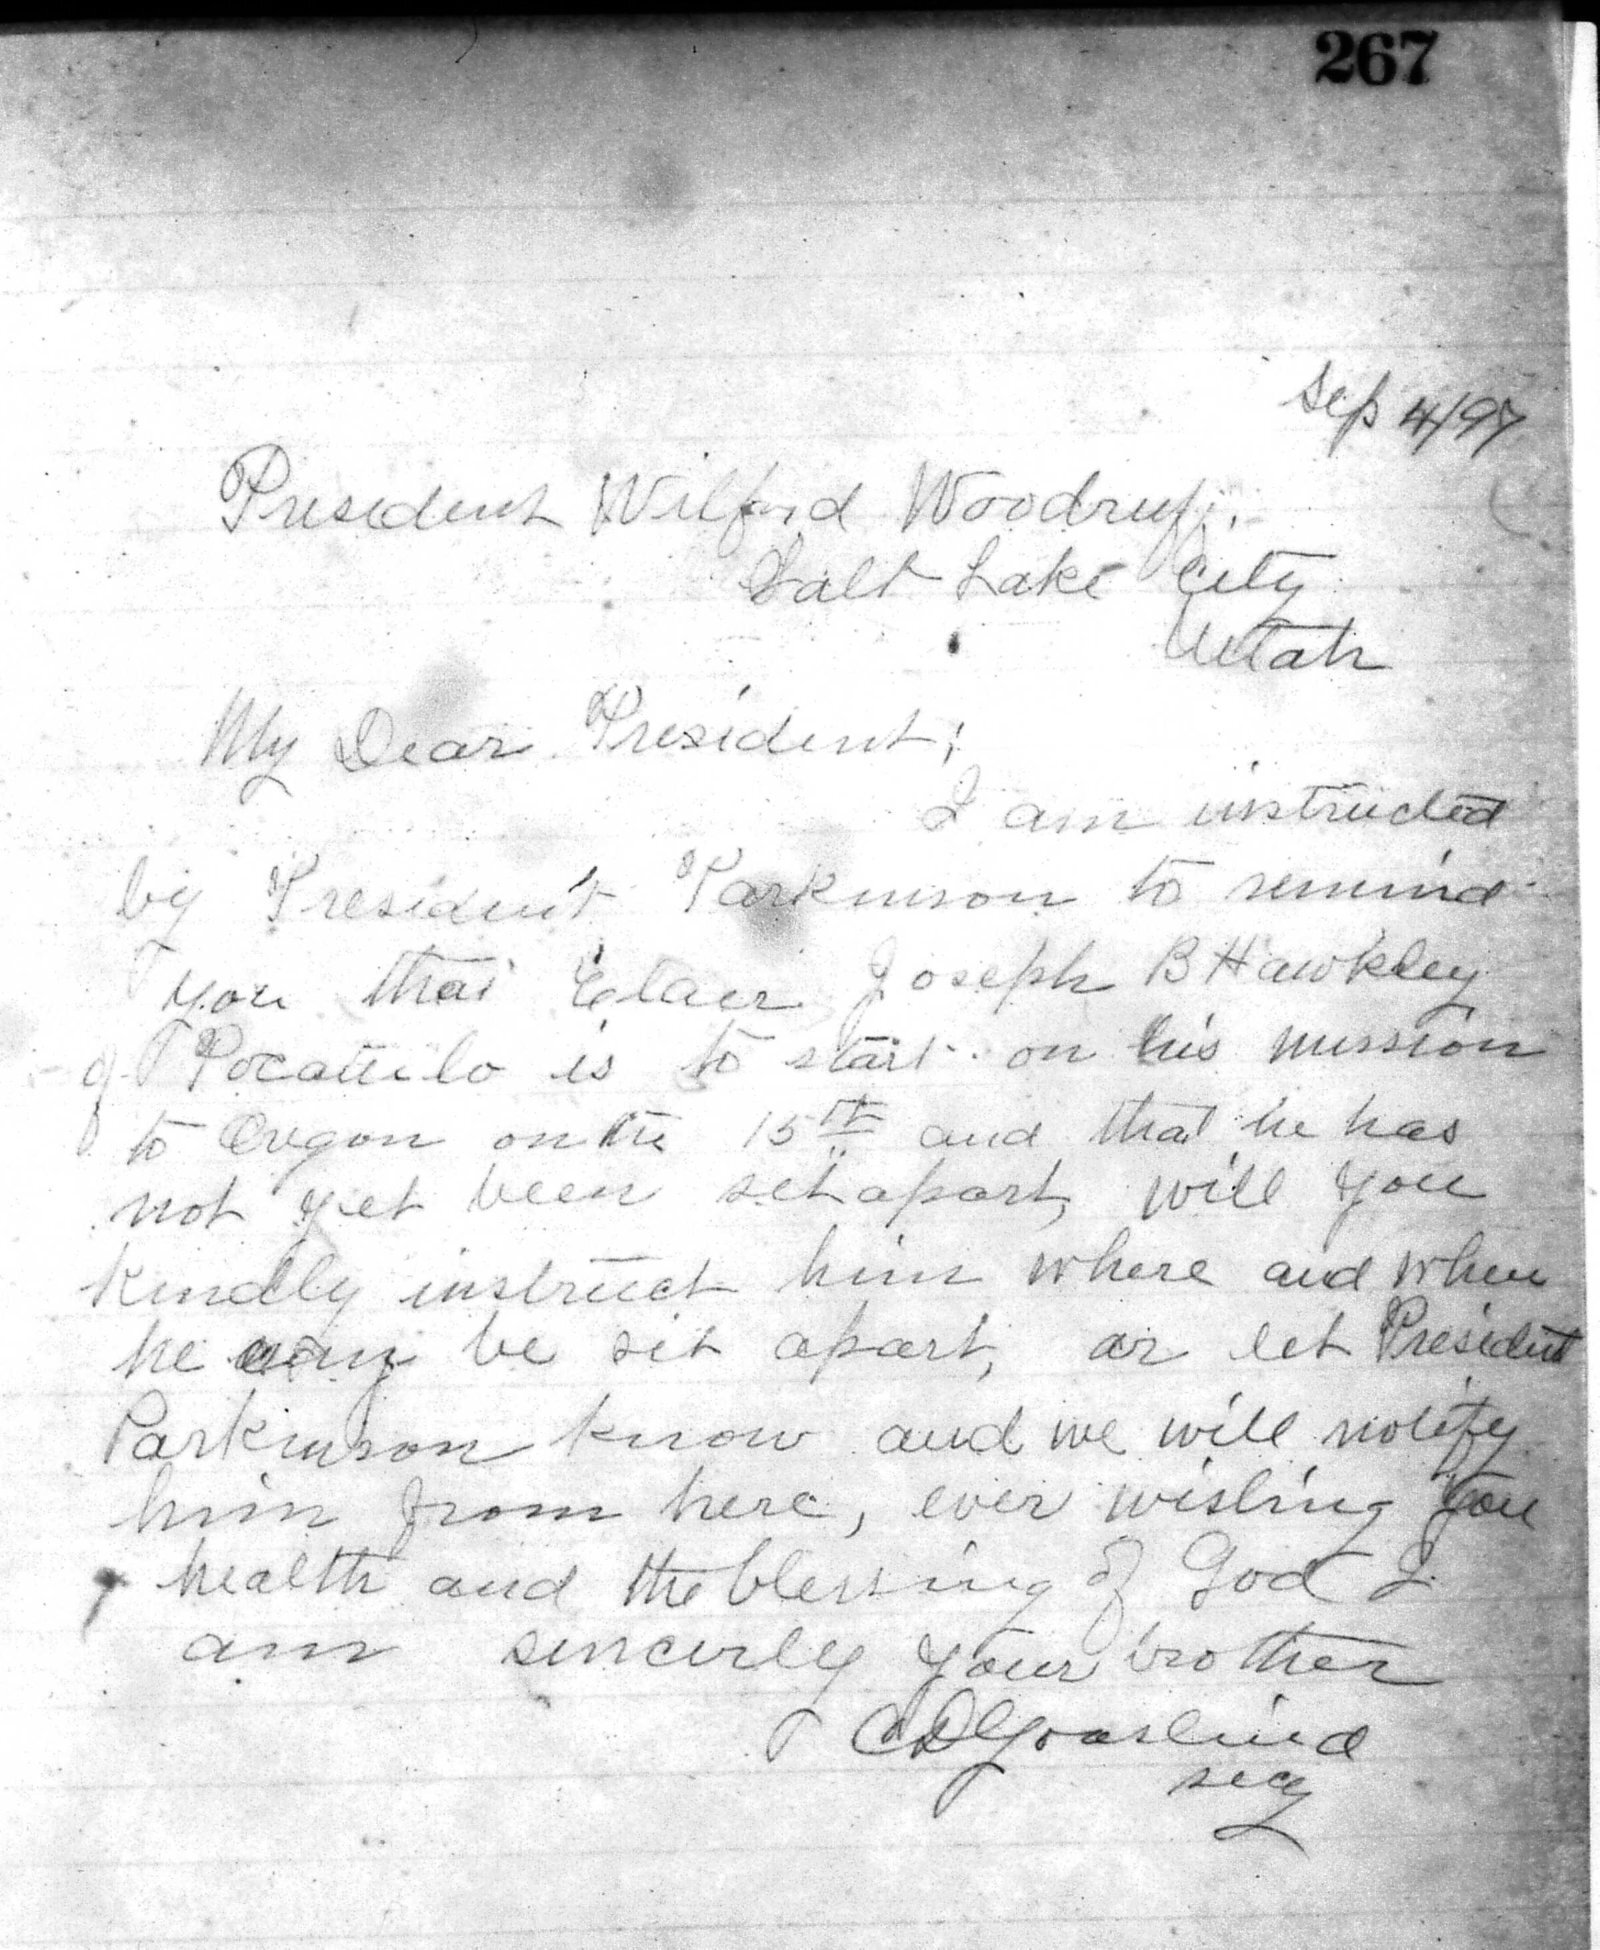 267
Sep 4/97
President Wilford Woodruff.
Salt Lake City
Utah
My Dear President;
I am instructed
by President Parkinson to remind
you that Elder Joseph B Hawkley
of Pocatello is to start on his mission
to Oregon on the 15th and that he has
not yet been set apart, will you
kindly instruct him where and when
he may be set apart, or let President
Parkinson know and we will notify
him from here, ever wishing you
health and the blessing of God I
am sincerly your brother
C D Goaslind
secy